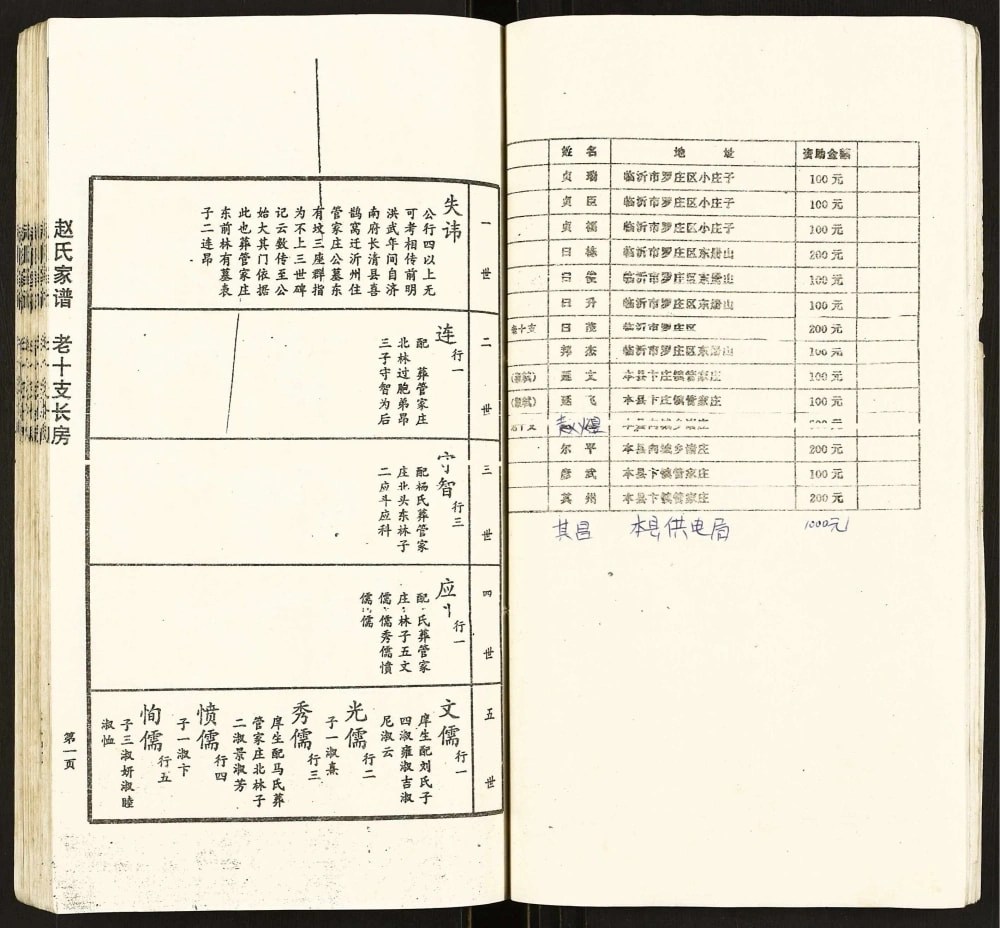 赵氏家谱 老十支长房
第一页
一世
失讳
公行四以上无
可考相传前明
洪武年间自济
南府长清县喜
鹊窝迁沂州住
管家庄公墓东
有坟三座群指
为不上三世碑
记云数传至公
始大其门依据
此也葬管家庄
东前林有墓表
子二连昂
二世
连 行一
配 葬管家庄
北林过胞弟昂
三子守智为后
三世
守智 行三
配杨氏葬管家
庄北头东林子
二应斗应科
四世
应 行一
配 氏葬管家
庄 林子五文
儒 儒秀儒愤
儒 儒
五世
文儒 行一
庠生配刘氏子
四淑雍淑吉淑
尼淑云
光儒 行二
子一淑熹
秀儒 行三
庠生配马氏葬
管家庄北林子
二淑景淑芳
愤儒 行四
子一淑卞
恂儒 行五
子三淑妍淑睦
淑恤
姓名 地址 资助金额
贞瑞 临沂市罗庄区小庄子 100元
贞臣 临沂市罗庄区小庄子 100元
贞福 临沂市罗庄区小庄子 100元
曰 临沂市罗庄区东 山 200元
曰俊 临沂市罗庄区东 山 100元
曰升 临沂市罗庄区东 山 100元
老十支 曰茂 临沂市罗庄区 200元
邦杰 临沂市罗庄区东 山 100元
延文 本县卞庄镇管家庄 100元
延飞 本县卞庄镇管家庄 100元
赵煜
尔平 本县向城乡 庄 200元
彦武 本县卞镇管家庄 100元
其州 本县卞镇管家庄 200元
其昌 本县供电局 1000元